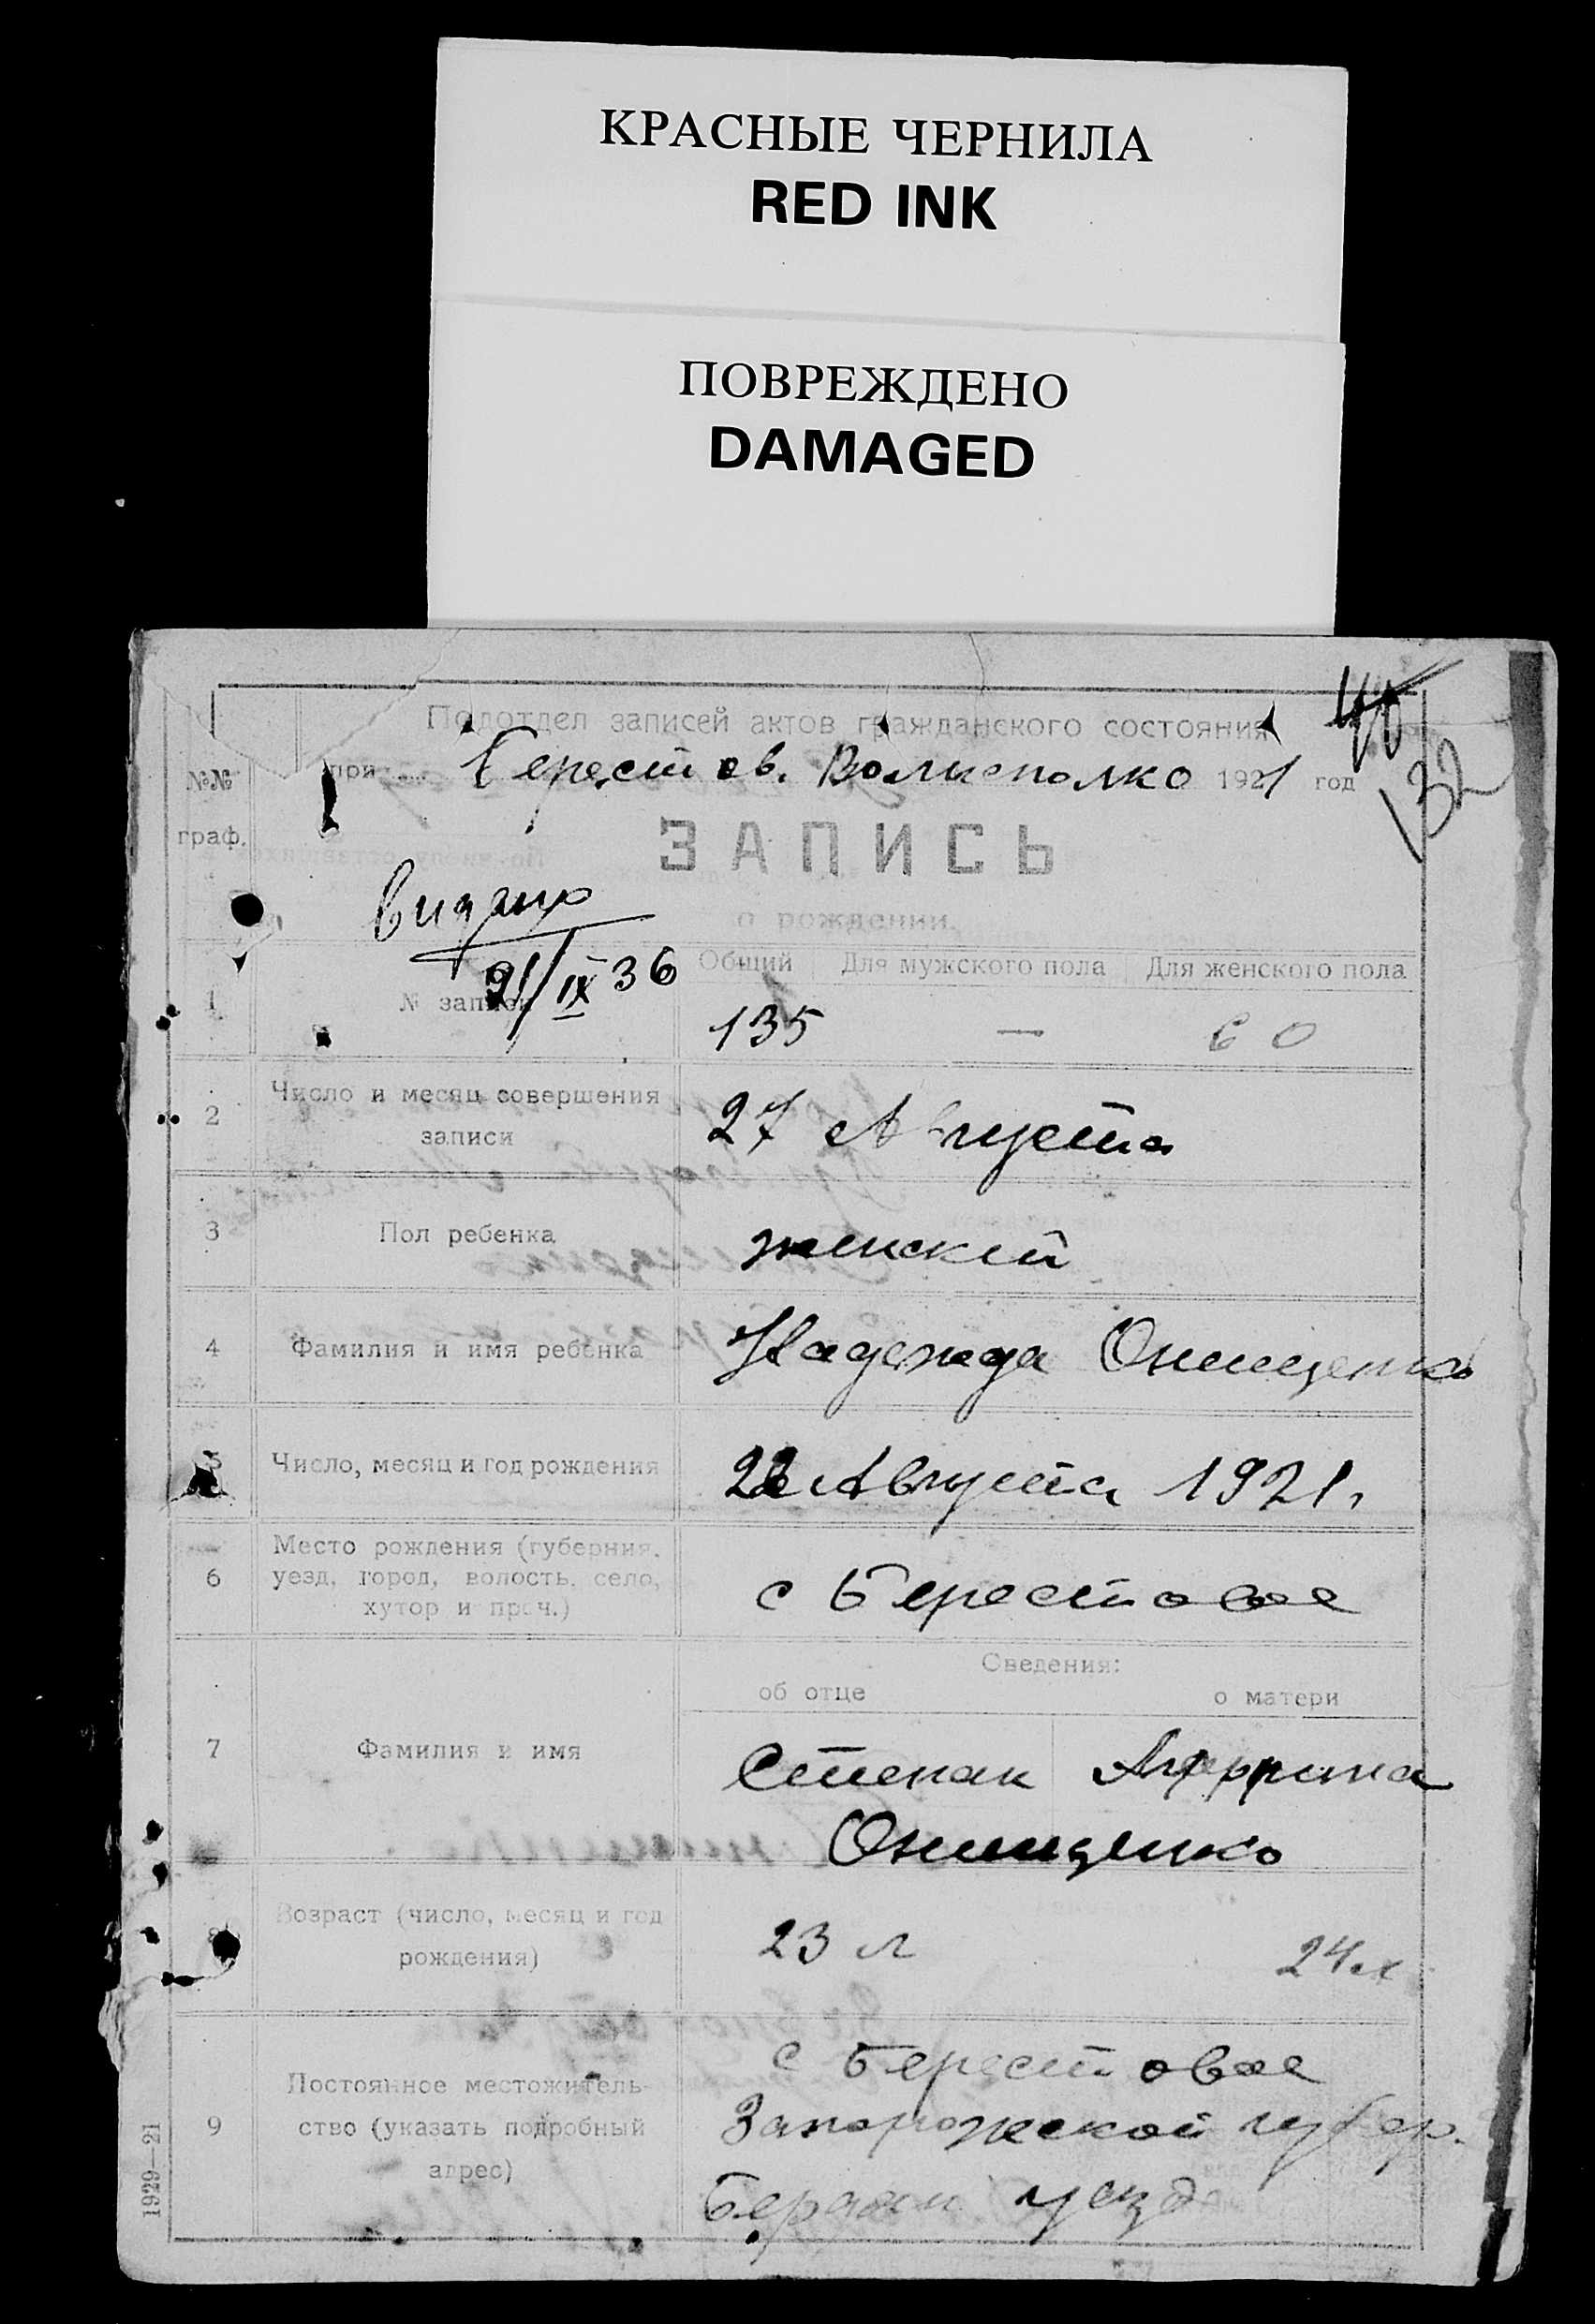 КРАСНЫЕ ЧЕРНИЛА
RED INK
ПОВРЕЖДЕНО
DAMAGED
Подотдел записей актов гражданского состояния
при Берестов. Волисполко 1921 год
132
№№ граф.
ЗАПИСЬ
о рождении.
21/IX 36
Общий Для мужского пола Для женского пола
1 № записи 135 — 60
2 Число и месяц совершения
записи
27 Августа
3 Пол ребенка женский
4 Фамилия и имя ребенка Надежда Онищенко
5 Число, месяц и год рождения Августа 1921,
6 Место рождения (губерния,
уезд, город, волость, село,
хутор и проч.)
с Берестовое
Сведения:
об отце о матери
7 Фамилия и имя Степан
Онищенко
8 Возраст (число, месяц и год
рождения)
23 л 24 л
9 Постоянное местожитель-
ство (указать подробный
адрес)
с Берестовое
Запорожской губер.
Бердян уезд
1929—21